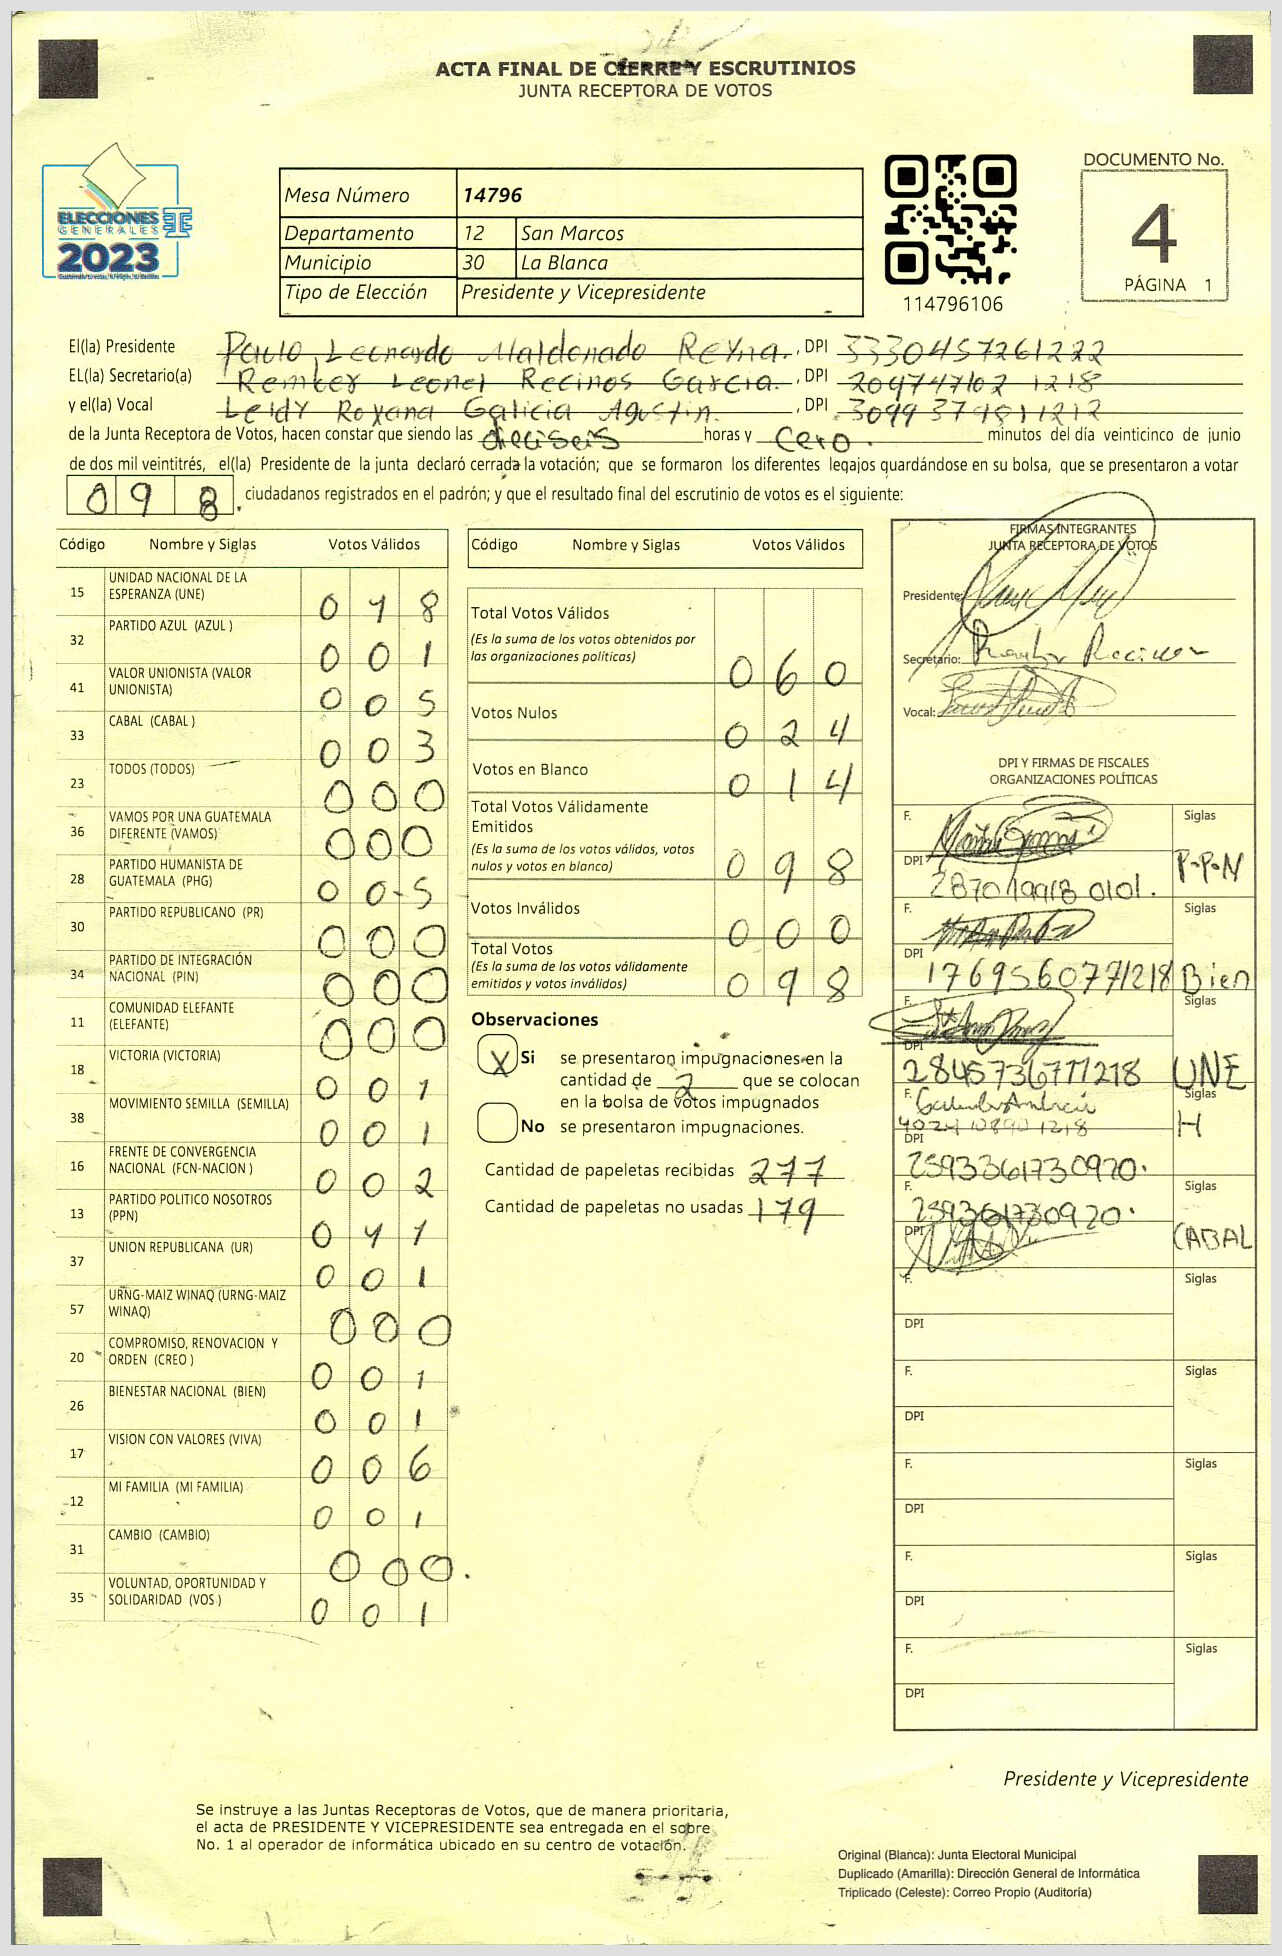 ACTA FINAL DE CIERRE Y ESCRUTINIOS
JUNTA RECEPTORA DE VOTOS
ELECCIONES
GENERALES
2023
Mesa Número 14796
Departamento 12 San Marcos
Municipio 30 La Blanca
Tipo de Elección Presidente y Vicepresidente
114796106
DOCUMENTO No.
4
PÁGINA 1
El(la) Presidente Paulo Leonardo Maldonado Reyna. , DPI 3330457261222
EL(la) Secretario(a) Rember Leonel Recinos Garcia. , DPI 209747102 1218
y el(la) Vocal Leidy Roxana Galicia Agustin. , DPI 3099379811212
de la Junta Receptora de Votos, hacen constar que siendo las dieciseis horas y cero. minutos del día veinticinco de junio
de dos mil veintitrés, el(la) Presidente de la junta declaró cerrada la votación; que se formaron los diferentes legajos guardándose en su bolsa, que se presentaron a votar
098. ciudadanos registrados en el padrón; y que el resultado final del escrutinio de votos es el siguiente:
Código Nombre y Siglas Votos Válidos
15 UNIDAD NACIONAL DE LA ESPERANZA (UNE) 0
32 PARTIDO AZUL (AZUL ) 0 0 1
41 VALOR UNIONISTA (VALOR UNIONISTA) 0 0 5
33 CABAL (CABAL ) 0 0 3
23 TODOS (TODOS) 0 0 0
36 VAMOS POR UNA GUATEMALA DIFERENTE (VAMOS) 0 0 0
28 PARTIDO HUMANISTA DE GUATEMALA (PHG) 0 0-5
30 PARTIDO REPUBLICANO (PR) 0 0 0
34 PARTIDO DE INTEGRACIÓN NACIONAL (PIN) 0 0 0
11 COMUNIDAD ELEFANTE (ELEFANTE) 0 0 0
18 VICTORIA (VICTORIA) 0 0 1
38 MOVIMIENTO SEMILLA (SEMILLA) 0 0 1
16 FRENTE DE CONVERGENCIA NACIONAL (FCN-NACION ) 0 0 2
13 PARTIDO POLITICO NOSOTROS (PPN) 0
37 UNION REPUBLICANA (UR) 0 0 1
57 URNG-MAIZ WINAQ (URNG-MAIZ WINAQ) 0 0 0
20 COMPROMISO, RENOVACION Y ORDEN (CREO ) 0 0 1
26 BIENESTAR NACIONAL (BIEN) 0 0 1
17 VISION CON VALORES (VIVA) 0 0 6
12 MI FAMILIA (MI FAMILIA) 0 0 1
31 CAMBIO (CAMBIO) 0 0 0.
35 VOLUNTAD, OPORTUNIDAD Y SOLIDARIDAD (VOS ) 0 0 1
Código Nombre y Siglas Votos Válidos
Total Votos Válidos
(Es la suma de los votos obtenidos por
las organizaciones políticas) 0 6 0
Votos Nulos 0 2 4
Votos en Blanco 0 1 4
Total Votos Válidamente
Emitidos
(Es la suma de los votos válidos, votos
nulos y votos en blanco) 0 9 8
Votos Inválidos 0 0 0
Total Votos
(Es la suma de los votos válidamente
emitidos y votos inválidos) 0 9 8
Observaciones
X Si se presentaron impugnaciones en la
cantidad de 2 que se colocan
en la bolsa de votos impugnados
No se presentaron impugnaciones.
Cantidad de papeletas recibidas 277
Cantidad de papeletas no usadas 179
FIRMAS INTEGRANTES
JUNTA RECEPTORA DE VOTOS
Presidente:
Secretario:
Vocal:
DPI Y FIRMAS DE FISCALES
ORGANIZACIONES POLÍTICAS
F. Siglas
DPI P-P-N
F. Siglas
DPI 1769560771218 Bien
F. Siglas
DPI 2845736771218 UNE
F. Siglas
H
DPI
F. Siglas
DPI CABAL
F. Siglas
DPI
F. Siglas
DPI
F. Siglas
DPI
F. Siglas
DPI
F. Siglas
DPI
Presidente y Vicepresidente
Se instruye a las Juntas Receptoras de Votos, que de manera prioritaria,
el acta de PRESIDENTE Y VICEPRESIDENTE sea entregada en el sobre
No. 1 al operador de informática ubicado en su centro de votación.
Original (Blanca): Junta Electoral Municipal
Duplicado (Amarilla): Dirección General de Informática
Triplicado (Celeste): Correo Propio (Auditoría)